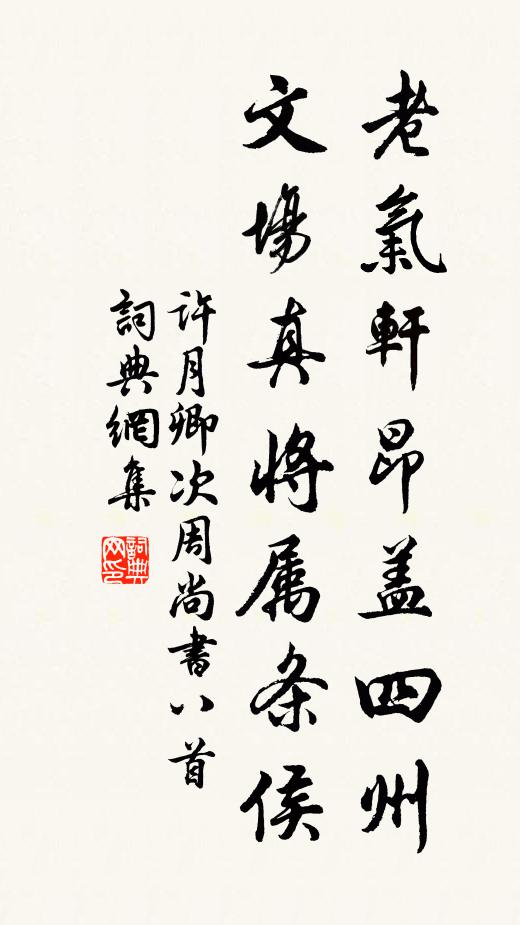 老氣軒昂盖四州
文場真將属条侯
许月卿次周尚書八首
詞典網集
詞典網印